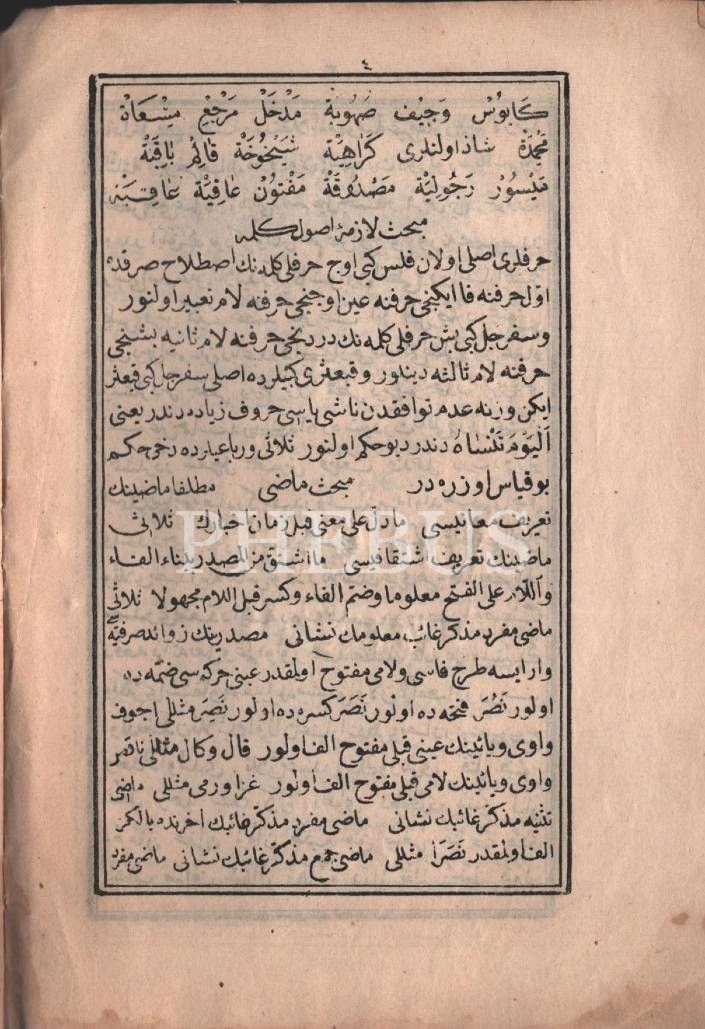 ٤
كابوس وجيف صهوبة مدخل مرجع مسعاة
محمدة شاذ اولنلرى كراهية شيخوخة قائم باقية
ميسور رجولية مصدوقة مفتون عافية عاقبة
مبحث لازمۀ اصول كلمه
حرفلرى اصلى اولان فلس كبى اوج حرفلى كلمه نك اصطلاح صرفده
اوّل حرفنه فا ايكنجى حرفنه عين اوجنجى حرفنه لام تعبير اولنور
وسفرجل كبى بش حرفلى كلمه نك دردنجى حرفنه لام ثانيه بشنجى
حرفنه لام ثالثه دينلور وقبعثرى كبيلرده اصلى سفرجل كبى قبعثر
ايكن وزنه عدم توافقدن ناشى ياسى حروف زياده دندر يعنى
اَلْيَوْمَ تَنْسَاهُ دندر ديو حكم اولنور ثلاثى ورباعيلرده دخى حكم
بو قياس اوزره در مبحث ماضى مطلقا ماضينك
تعريف معناييسى ما دلّ على معنى قبل زمان اخبارك ثلاثى
ماضينك تعريف اشتقاقيسى ما اشتق من المصدر بناء الفاء
واللام على الفتح معلوما وضم الفاء وكسر قبل اللام مجهولا ثلاثى
ماضى مفرد مذكر غائب معلومك نشانى مصدرينك زوائد صرفيه سى
وار ايسه طرح فاسى ولامى مفتوح اولمقدر عينى حركه سى ضمه ده
اولور نَصُرَ فتحه ده اولور نَصَرَ كسره ده اولور نَصِرَ مثللى اجوف
واوى ويائينك عينى قبلى مفتوح الف اولور قال وكال مثللى ناقص
واوى ويائينك لامى قبلى مفتوح الف اولور غزا ورمى مثللى ماضى
تثنيه مذكر غائبك نشانى ماضى مفرد مذكر غائبك اخرنده
الف اولمقدر نَصَرَا مثللى ماضى جمع مذكر غائبك نشانى ماضى مفرد
PHEBUS